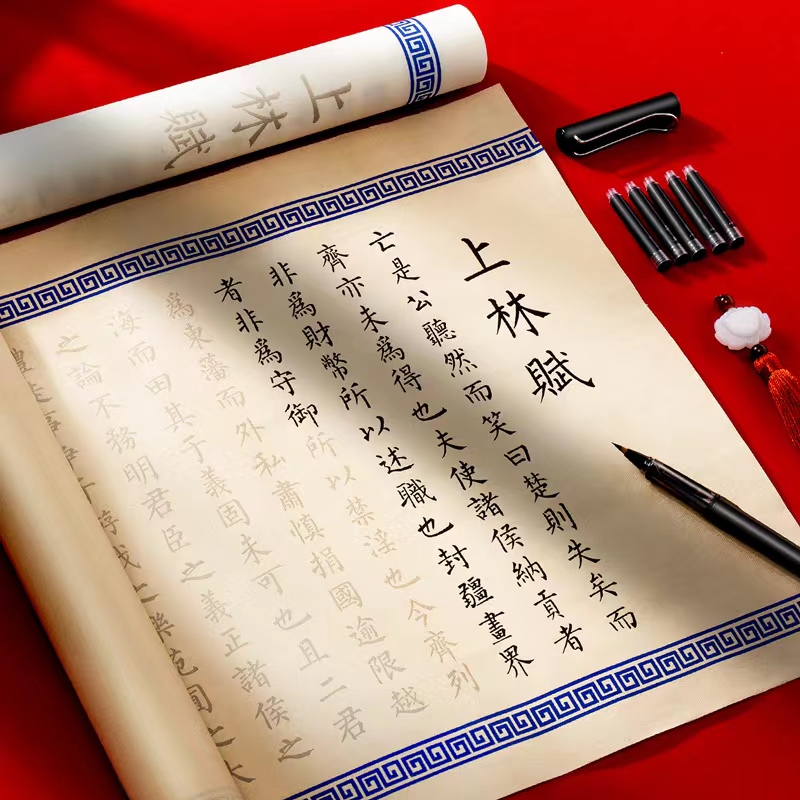 上林賦
上林賦
亡是公聽然而笑曰楚則失矣而
齊亦未爲得也夫使諸侯納貢者
非爲財幣所以述職也封疆畫界
者非爲守御所以禁淫也今齊列
爲東藩而外私肅慎捐國逾限越
海而田其于義固未可也且二君
之論不務明君臣之義正諸侯之
禮徒事爭于游戲之樂苑囿之大